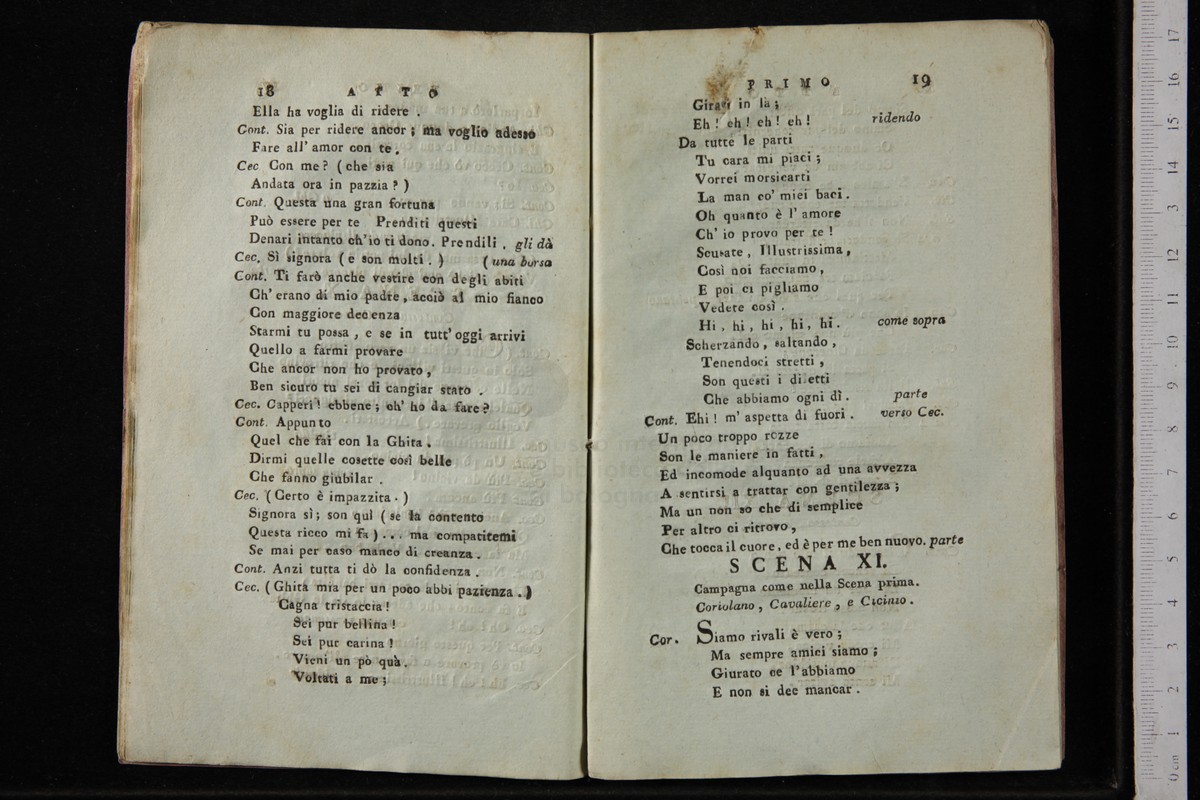 18 ATTO
Ella ha voglia di ridere .
Cont. Sia per ridere ancor ; ma voglio adesso
Fare all' amor con te.
Cec Con me? ( che sia
Andata ora in pazzia ? )
Cont. Questa una gran fortuna
Può essere per te Prenditi questi
Denari intanto ch'io ti dono. Prendili , gli dà
Cec. Sì signora ( e son molti . ) ( una borsa
Cont. Ti farò anche vestire con degli abiti
Ch' erano di mio padre , acciò al mio fianco
Con maggiore decenza
Starmi tu possa , e se in tutt' oggi arrivi
Quello a farmi provare
Che ancor non ho provato ,
Ben sicuro tu sei di cangiar stato .
Cec. Capperi ! ebbene ; ch' ho da fare ?
Cont. Appunto
Quel che fai con la Ghita .
Dirmi quelle cosette così belle
Che fanno giubilar .
Cec. ( Certo è impazzita . )
Signora sì ; son quì ( se la contento
Questa ricco mi fa ) . . . ma compatitemi
Se mai per caso manco di creanza .
Cont. Anzi tutta ti dò la confidenza .
Cec. ( Ghita mia per un poco abbi pazienza . )
Cagna tristaccia !
Sei pur bellina !
Sei pur carina !
Vieni un pò quà .
Voltati a me ;
PRIMO 19
Girati in là ;
Eh ! eh ! eh ! eh ! ridendo
Da tutte le parti
Tu cara mi piaci ;
Vorrei morsicarti
La man co' miei baci .
Oh quanto è l' amore
Ch' io provo per te !
Scusate , Illustrissima ,
Così noi facciamo ,
E poi ci pigliamo
Vedete così .
Hi , hi , hi , hi , hi . come sopra
Scherzando , saltando ,
Tenendoci stretti ,
Son questi i diletti
Che abbiamo ogni dì . parte
Cont. Ehi ! m' aspetta di fuori . verso Cec.
Un poco troppo rozze
Son le maniere in fatti ,
Ed incomode alquanto ad una avvezza
A sentirsi a trattar con gentilezza ;
Ma un non so che di semplice
Per altro ci ritrovo ,
Che tocca il cuore , ed è per me ben nuovo. parte
SCENA XI.
Campagna come nella Scena prima.
Coriolano , Cavaliere , e Cicinio .
Cor. Siamo rivali è vero ;
Ma sempre amici siamo ;
Giurato ce l'abbiamo
E non si dee mancar .